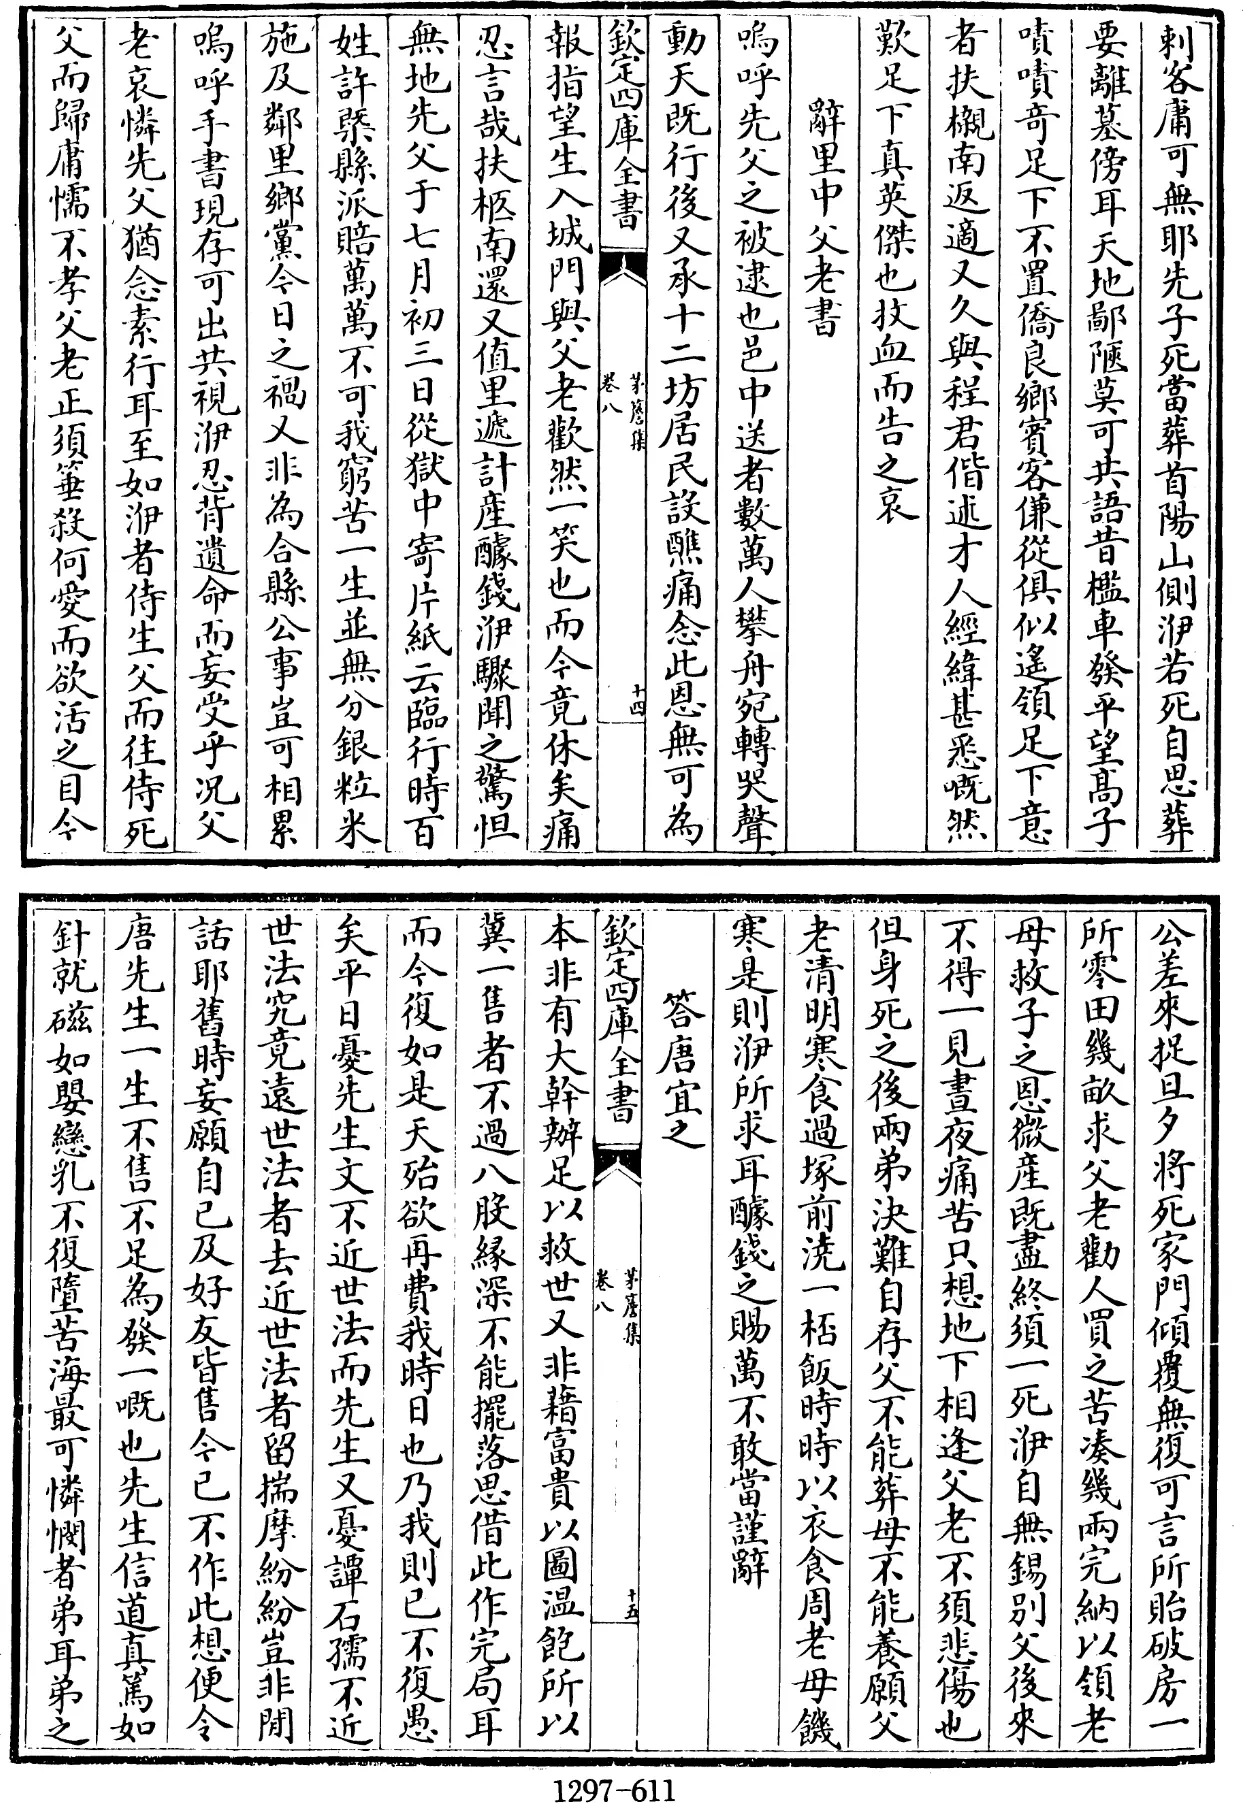 刺客庸可無耶先子死當葬首陽山側洢若死自思葬
要離墓傍耳天地鄙陋莫可共語昔檻車發平望髙子
嘖嘖竒足下不置僑良鄉賓客傔從俱似遙領足下意
者扶櫬南返適又久與程君偕述才人經緯甚悉嘅然
歎足下真英傑也抆血而告之哀
辭里中父老書
嗚呼先父之被逮也邑中送者數萬人攀舟宛轉哭聲
動天既行後又承十二坊居民設醮痛念此恩無可為
欽定四庫全書
茅簷集
卷八
十四
報指望生入城門與父老歡然一笑也而今竟休矣痛
忍言哉扶柩南還又值里遞計產醵錢洢驟聞之驚怛
無地先父于七月初三日從獄中寄片紙云臨行時百
姓許槩縣派賠萬萬不可我窮苦一生並無分銀粒米
施及鄰里鄉黨今日之禍又非為合縣公事豈可相累
嗚呼手書現存可出共視洢忍背遺命而妄受乎况父
老哀憐先父猶念素行耳至如洢者侍生父而往侍死
父而歸庸懦不孝父老正須箠殺何愛而欲活之目今
公差來捉旦夕將死家門傾覆無復可言所貽破房一
所零田幾畝求父老勸人買之苦凑幾兩完納以領老
母救子之恩微産既盡終須一死洢自無錫别父後來
不得一見晝夜痛苦只想地下相逢父老不須悲傷也
但身死之後兩弟決難自存父不能葬母不能養願父
老清明寒食過塚前澆一桮飯時時以衣食周老母饑
寒是則洢所求耳醵錢之賜萬不敢當謹辭
答唐宜之
欽定四庫全書
茅簷集
卷八
十五
本非有大幹辦足以救世又非藉富貴以圖温飽所以
冀一售者不過八股緣深不能擺落思借此作完局耳
而今復如是天殆欲再費我時日也乃我則已不復愚
矣平日憂先生文不近世法而先生又憂譚石孺不近
世法究竟遠世法者去近世法者留揣摩紛紛豈非閒
話耶舊時妄願自己及好友皆售今已不作此想便令
唐先生一生不售不足為發一嘅也先生信道真篤如
針就磁如嬰戀乳不復墮苦海最可憐憫者弟耳弟之
1297-611